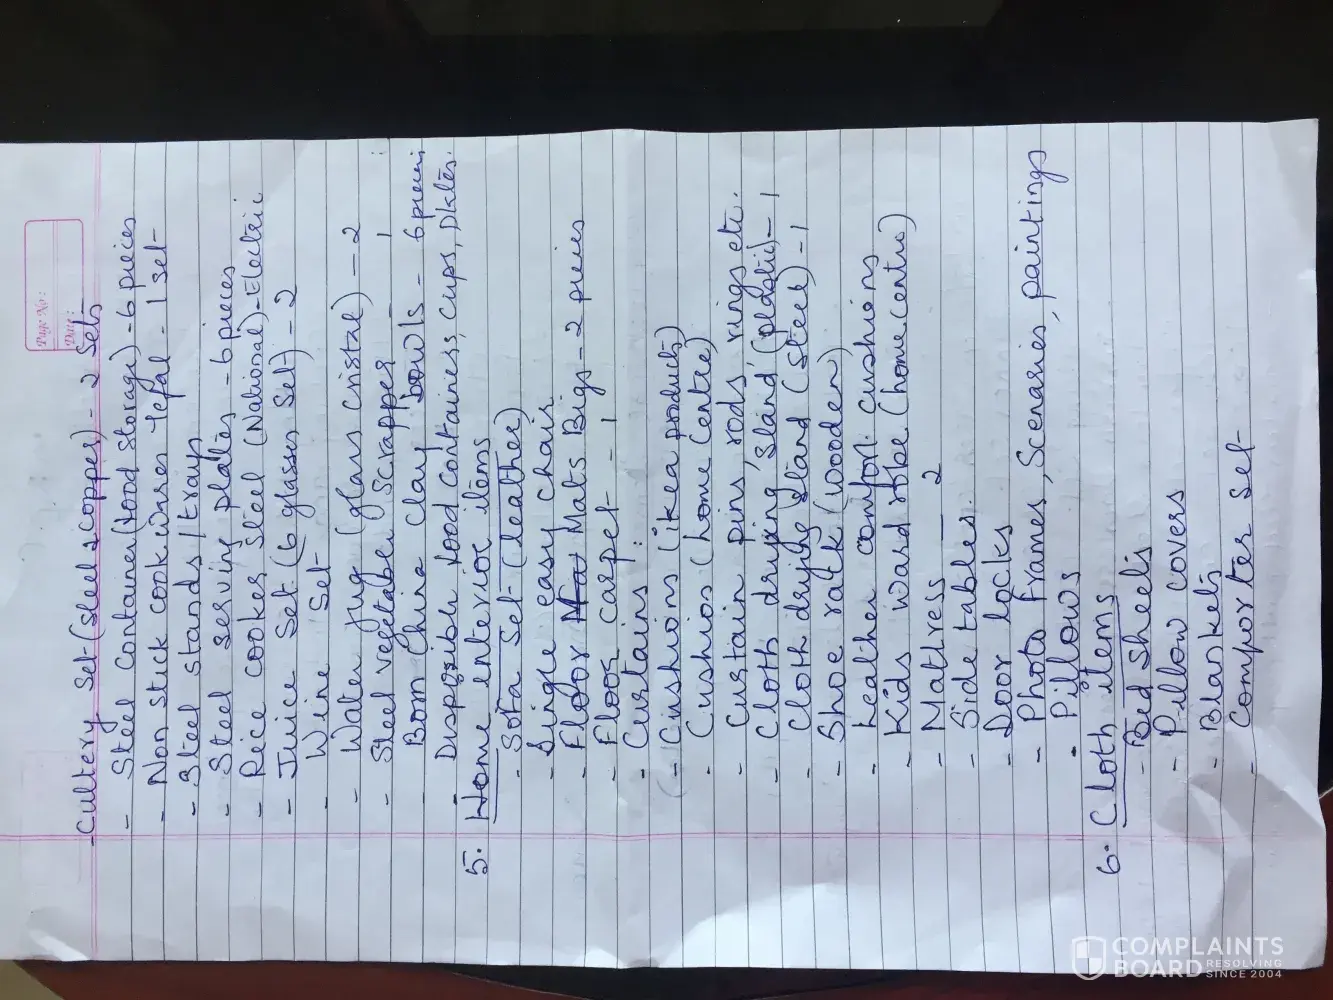 Page No:
Date:
- Cultery Set (Steel & copper) - 2 Sets
- Steel Container (food Storage) - 6 pieces
- Non stick cookwares Tefal - 1 Set
- Steel stands / trays
- Steel serving plates - 6 pieces
- Rice cooker Steel (National) - Electric
- Juice Set (6 glasses Set) - 2
Wine Set
- Water Jug (glass cristal) - 2
- Steel vegetable Scrapper - 1
- Bom China clay bowls - 6 pieces
Disposible food containers, cups, Dktes.
5. Home enterior items
- Sofa Set (leather)
- Single easy chair
- Floor Mats Bigs - 2 pieces
- Floor carpet - 1
- Curtains :
(- Cushions (ikea products)
- Cushios (home Centre)
- Custain pins, rods, rings etc..
- Cloth drying Stand (plastic) - 1
- Cloth drying Stand (Steel) - 1
- Shoe ratk (wooden)
- Leather comfort cushions
- Kids wardrobe (home centre)
- Mattress - 2
- Side tables
- Door locks
- Photo frames, Scenaries, paintings
- Pillows
6. Cloth items
- Bed sheets
- Pillow covers
- Blankets
- Comporter set
COMPLAINTS
BOARD RESOLVING SINCE 2004